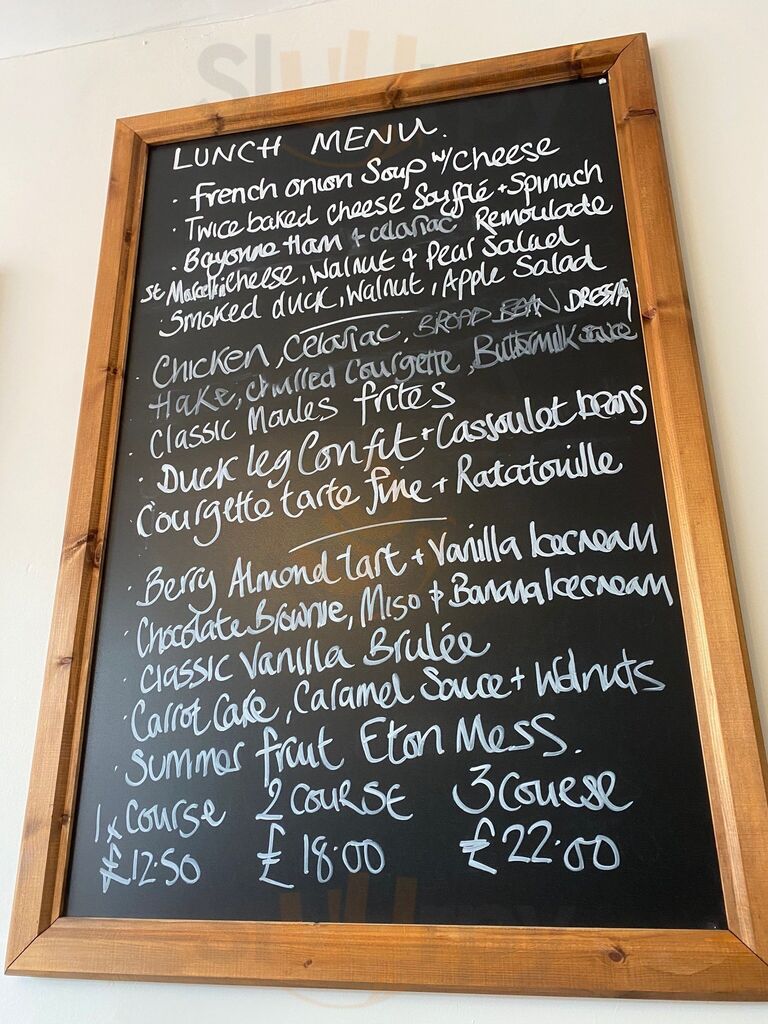 LUNCH MENU.
· French onion Soup w/ Cheese
· Twice baked cheese Soufflé + Spinach
· Bayonne Ham + celariac Remoulade
St Marcellin Cheese, Walnut & Pear Salad
· Smoked duck, Walnut, Apple Salad
· Chicken, Celariac, BROAD BEAN DRESSING
Hake, Charred Courgette, Buttermilk sauce
· Classic Moules frites
· Duck leg Confit + Cassoulet beans
· Courgette tarte fine + Ratatouille
· Berry Almond tart + Vanilla Icecream
· Chocolate Brownie, Miso & Banana Icecream
· Classic Vanilla Brulée
· Carrot Cake, Caramel Sauce + Walnuts
· Summer fruit Eton Mess.
1 x Course 2 COURSE 3 Course
£12·50 £18·00 £22·00